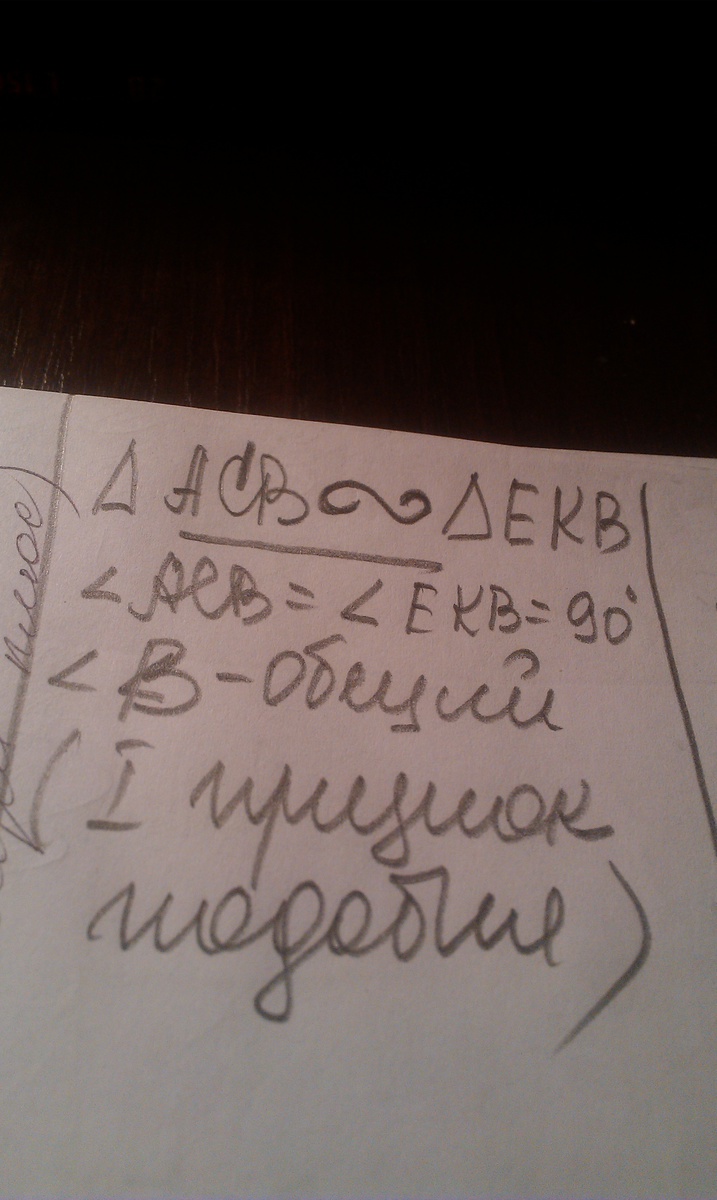 Δ ACB ∾ Δ EKB
< ACB = < EKB = 90°
< B - общий
( I признак
подобия )